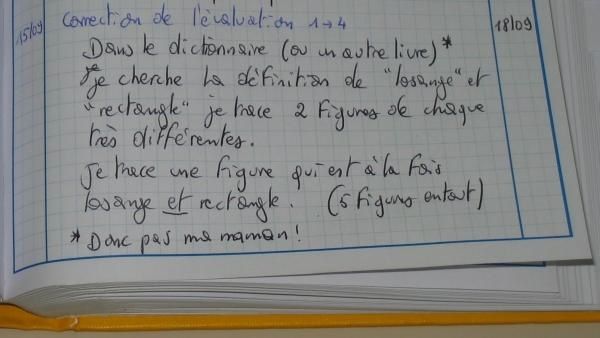 15/09
Correction de l'évaluation 1→4
18/09
Dans le dictionnaire (ou un autre livre)*
je cherche la définition de "losange" et
"rectangle" je trace 2 figures de chaque
très différentes.
je trace une figure qui est à la fois
losange et rectangle. (5 figures en tout)
* Donc pas ma maman !